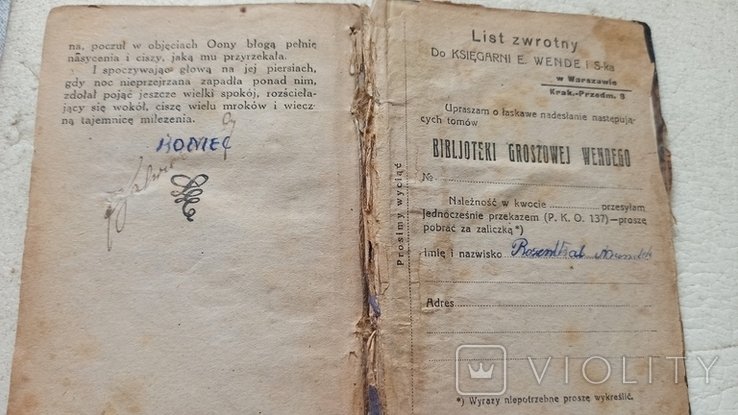 na, poczuł w objęciach Oony błogą pełnię
nasycenia i ciszy, jaką mu przyrzekała.
I spoczywając głową na jej piersiach,
gdy noc nieprzejrzana zapadła ponad nim,
zdołał pojąć jeszcze wielki spokój, rozściela-
jący się wokół, ciszę wielu mroków i wiecz-
ną tajemnicę milczenia.
KONIEC
List zwrotny
Do KSIĘGARNI E. WENDE i S-ka
w Warszawie
Krak.-Przedm. 9
Upraszam o łaskawe nadesłanie następują-
cych tomów
BIBLJOTEKI GROSZOWEJ WENDEGO
№
Należność w kwocie przesyłam
jednocześnie przekazem (P. K. O. 137)—proszę
pobrać za zaliczką*)
Imię i nazwisko Rozenthal
Adres
*) Wyrazy niepotrzebne proszę wykreślić.
Prosimy wyciąć
VIOLITY